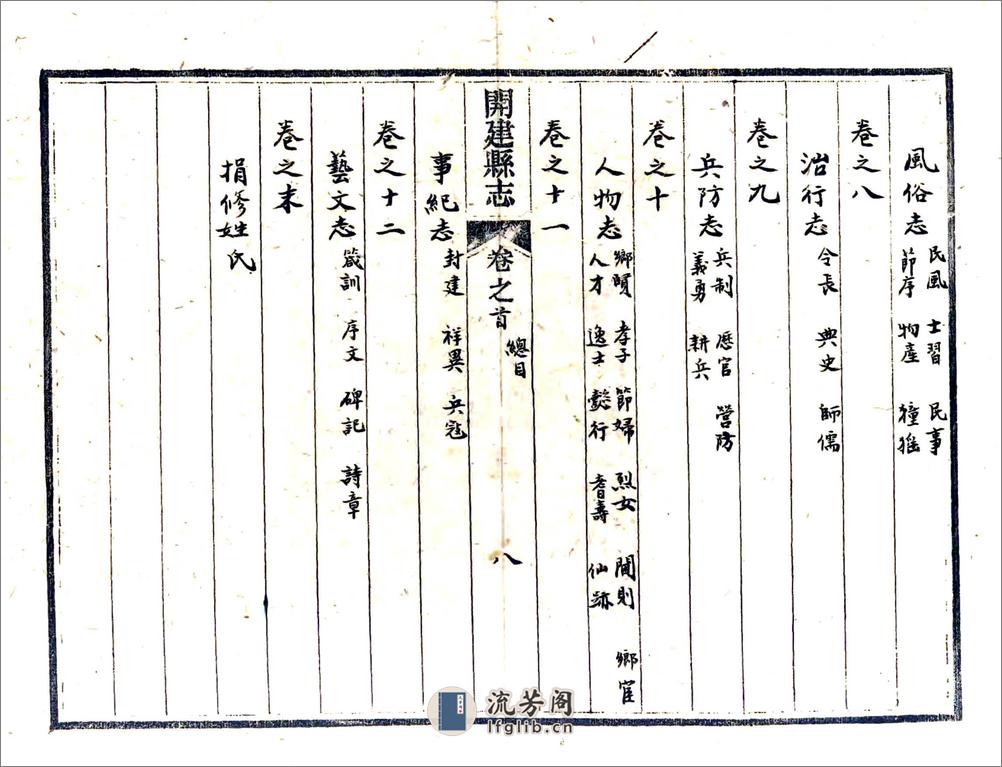 風俗志 民風 士習 民事 節序 物產 獞猺
卷之八
治行志 令長 典史 師儒
卷之九
兵防志 兵制 歷官 營防 義勇 耕兵
卷之十
人物志 鄉賢 孝子 節婦 烈女 閫則 鄉宦 人才 逸士 懿行 耆壽 仙跡
卷之十一
開建縣志 卷之首 總目 八
事紀志 封建 祥異 兵寇
卷之十二
藝文志 箴訓 序文 碑記 詩章
卷之末
捐修姓氏
流芳阁
lfglib.cn